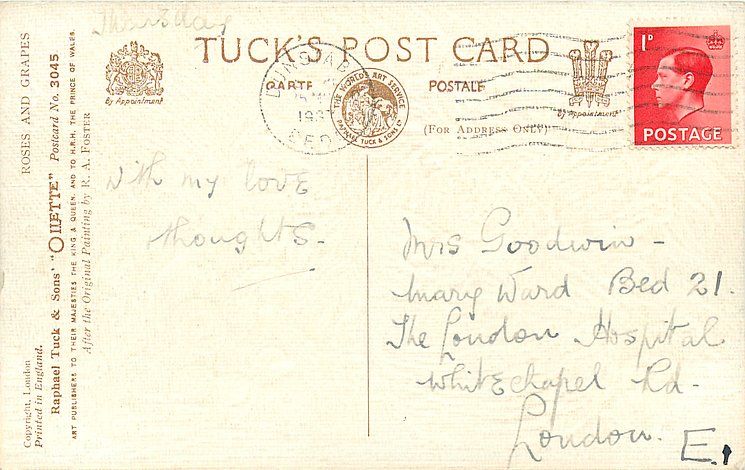 Thursday
TUCK'S POST CARD
CARTE POSTALE
(FOR ADDRESS ONLY)
By Appointment
By Appointment
THE WORLD'S ART SERVICE
RAPHAEL TUCK & SONS LTD
DUNSTABLE
193
BEDS
1D
POSTAGE
ROSES AND GRAPES
Copyright, London
Printed in England.
Raphael Tuck & Sons' "OILETTE" Postcard No. 3045
ART PUBLISHERS TO THEIR MAJESTIES THE KING & QUEEN, AND TO H.R.H. THE PRINCE OF WALES.
After the Original Painting by R. A. FOSTER
With my love
thoughts-
Mrs Goodwin-
Mary Ward Bed 21.
The London Hospital
Whitechapel Rd-
London. E.1